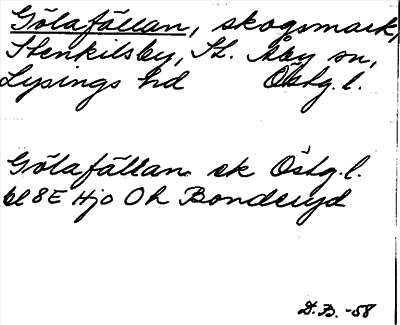 Götafällan, skogsmark,
Stenkilsby, St. Åby sn,
Lysings hd Östg.l.
Götafällan ek Östg.l.
bl 8E Hjo Öh Bonderyd
D.B. -58